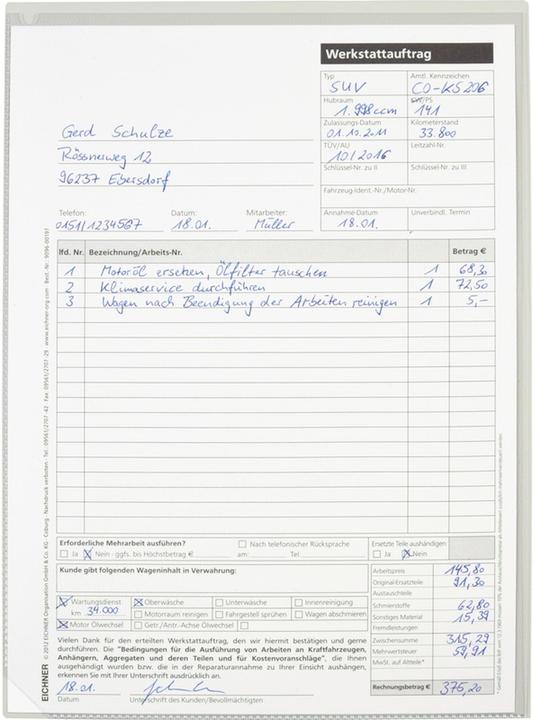 Werkstattauftrag
Typ
SUV
Amtl. Kennzeichen
CO-KS 206
Hubraum
1.998 ccm
kW/PS
141
Zulassungs-Datum
01.10.2011
Kilometerstand
33.800
TÜV/AU
10/2016
Leitzahl-Nr.
Schlüssel-Nr. zu II
Schlüssel-Nr. zu III
Fahrzeug-Ident.-Nr./Motor-Nr.
Annahme-Datum
18.01.
Unverbindl. Termin
Gerd Schulze
Rössnerweg 12
96237 Ebersdorf
Telefon: Datum: Mitarbeiter:
01511/1234567 18.01. Müller
lfd. Nr. Bezeichnung/Arbeits-Nr. Betrag €
1 Motoröl ersetzen, Ölfilter tauschen 1 68,30
2 Klimaservice durchführen 1 72,50
3 Wagen nach Beendigung der Arbeiten reinigen 1 5,-
Erforderliche Mehrarbeit ausführen?
Nach telefonischer Rücksprache
Ja Nein - ggfs. bis Höchstbetrag € am: Tel:
Ersetzte Teile aushändigen
Ja Nein
Kunde gibt folgenden Wageninhalt in Verwahrung:
Wartungsdienst
km 34.000
Oberwäsche Unterwäsche Innenreinigung
Motorraum reinigen Fahrgestell sprühen Wagen abschmieren
Motor Ölwechsel Getr./Antr.-Achse Ölwechsel
Arbeitspreis 145,80
Original-Ersatzteile 91,30
Austauschteile
Schmierstoffe 62,80
Sonstiges Material 15,39
Fremdleistungen
Zwischensumme 315,29
Mehrwertsteuer 59,91
MwSt. auf Altteile*
Rechnungsbetrag € 375,20
Vielen Dank für den erteilten Werkstattauftrag, den wir hiermit bestätigen und gerne
durchführen. Die "Bedingungen für die Ausführung von Arbeiten an Kraftfahrzeugen,
Anhängern, Aggregaten und deren Teilen und für Kostenvoranschläge", die Ihnen
ausgehändigt wurden bzw. die in der Reparaturannahme zu Ihrer Einsicht aushängen,
erkennen Sie mit Ihrer Unterschrift ausdrücklich an.
18.01.
Datum Unterschrift des Kunden/Bevollmächtigten
EICHNER © 2012 EICHNER Organisation GmbH & Co. KG · Coburg · Nachdruck verboten · Tel.: 09561/2707-42 Fax: 09561/2707-29 www.eichner-org.com Best.-Nr.: 9096-00197